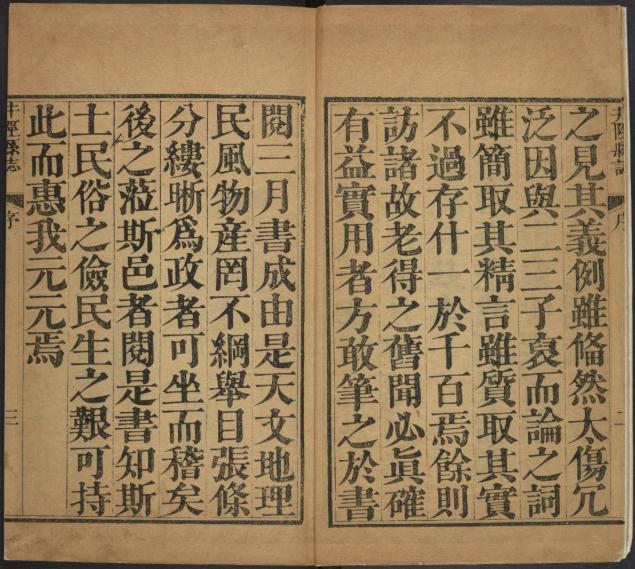 之見其義例雖偹然太傷冗
泛因與二三子裒而論之詞
雖簡取其精言雖質取其實
不過存什一於千百焉餘則
訪諸故老得之舊聞必眞確
有益實用者方敢筆之於書
井陘縣誌
序
二
閱三月書成由是天文地理
民風物産罔不綱舉目張條
分縷晰爲政者可坐而稽矣
後之蒞斯邑者閱是書知斯
土民俗之儉民生之艱可持
此而惠我元元焉
井陘縣誌
序
三